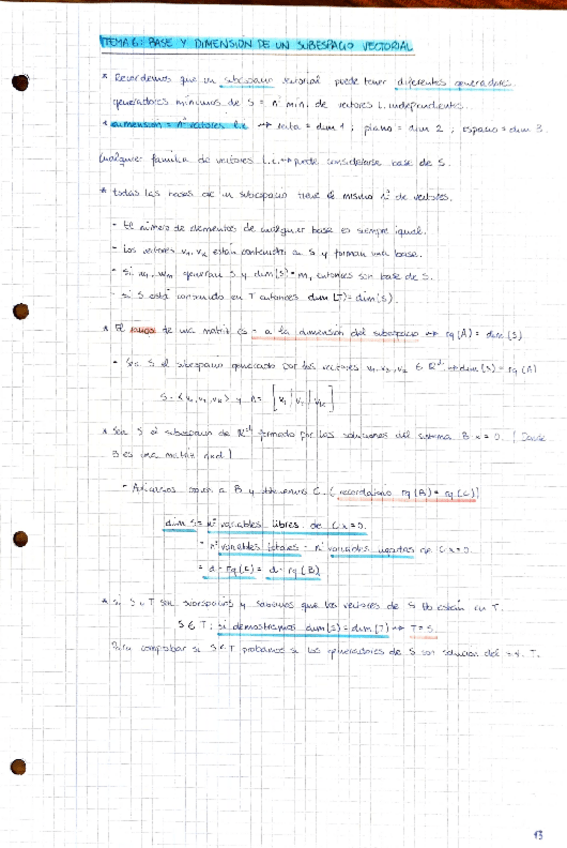 TEMA 6: BASE Y DIMENSIÓN DE UN SUBESPACIO VECTORIAL
* Recordemos que un subespacio vectorial puede tener diferentes generadores.
generadores mínimos de S = nº mín. de vectores l. independientes.
* dimensión = nº vectores l.i. → recta = dim 1 ; plano = dim 2 ; espacio = dim 3.
Cualquier familia de vectores l.i. → puede considerarse base de S.
* todas las bases de un subespacio tiene el mismo nº de vectores.
- El número de elementos de cualquier base es siempre igual.
- Los vectores v1, vd están contenidos en S y forman una base.
- Si w1, wm generan S y dim(S) = m, entonces son base de S.
- Si S está contenido en T entonces dim (T) = dim(S).
* El rango de una matriz es = a la dimensión del subespacio → rg (A) = dim (S)
- Sea S el subespacio generado por los vectores v1, v2, vk ∈ ℝᵈ → dim (S) = rg (A)
S = <v1, v2, vk> y A = [v1 | v2 | vk]
* Sea S el subespacio de ℝᵈ formado por las soluciones del sistema B x = 0. (Donde
B es una matriz qxd)
- Aplicamos a B y obtenemos C. (recordatorio rg (B) = rg (C))
dim S = nº variables libres de C x = 0.
= nº variables totales - nº variables ligadas de C x = 0.
= d - rg (C) = d - rg (B)
* Si S y T son subespacios y sabemos que los vectores de S tb están en T.
S ∈ T ; si demostramos dim (S) = dim (T) → T = S.
Para comprobar si S ∈ T probamos si los generadores de S son solución del T.
13